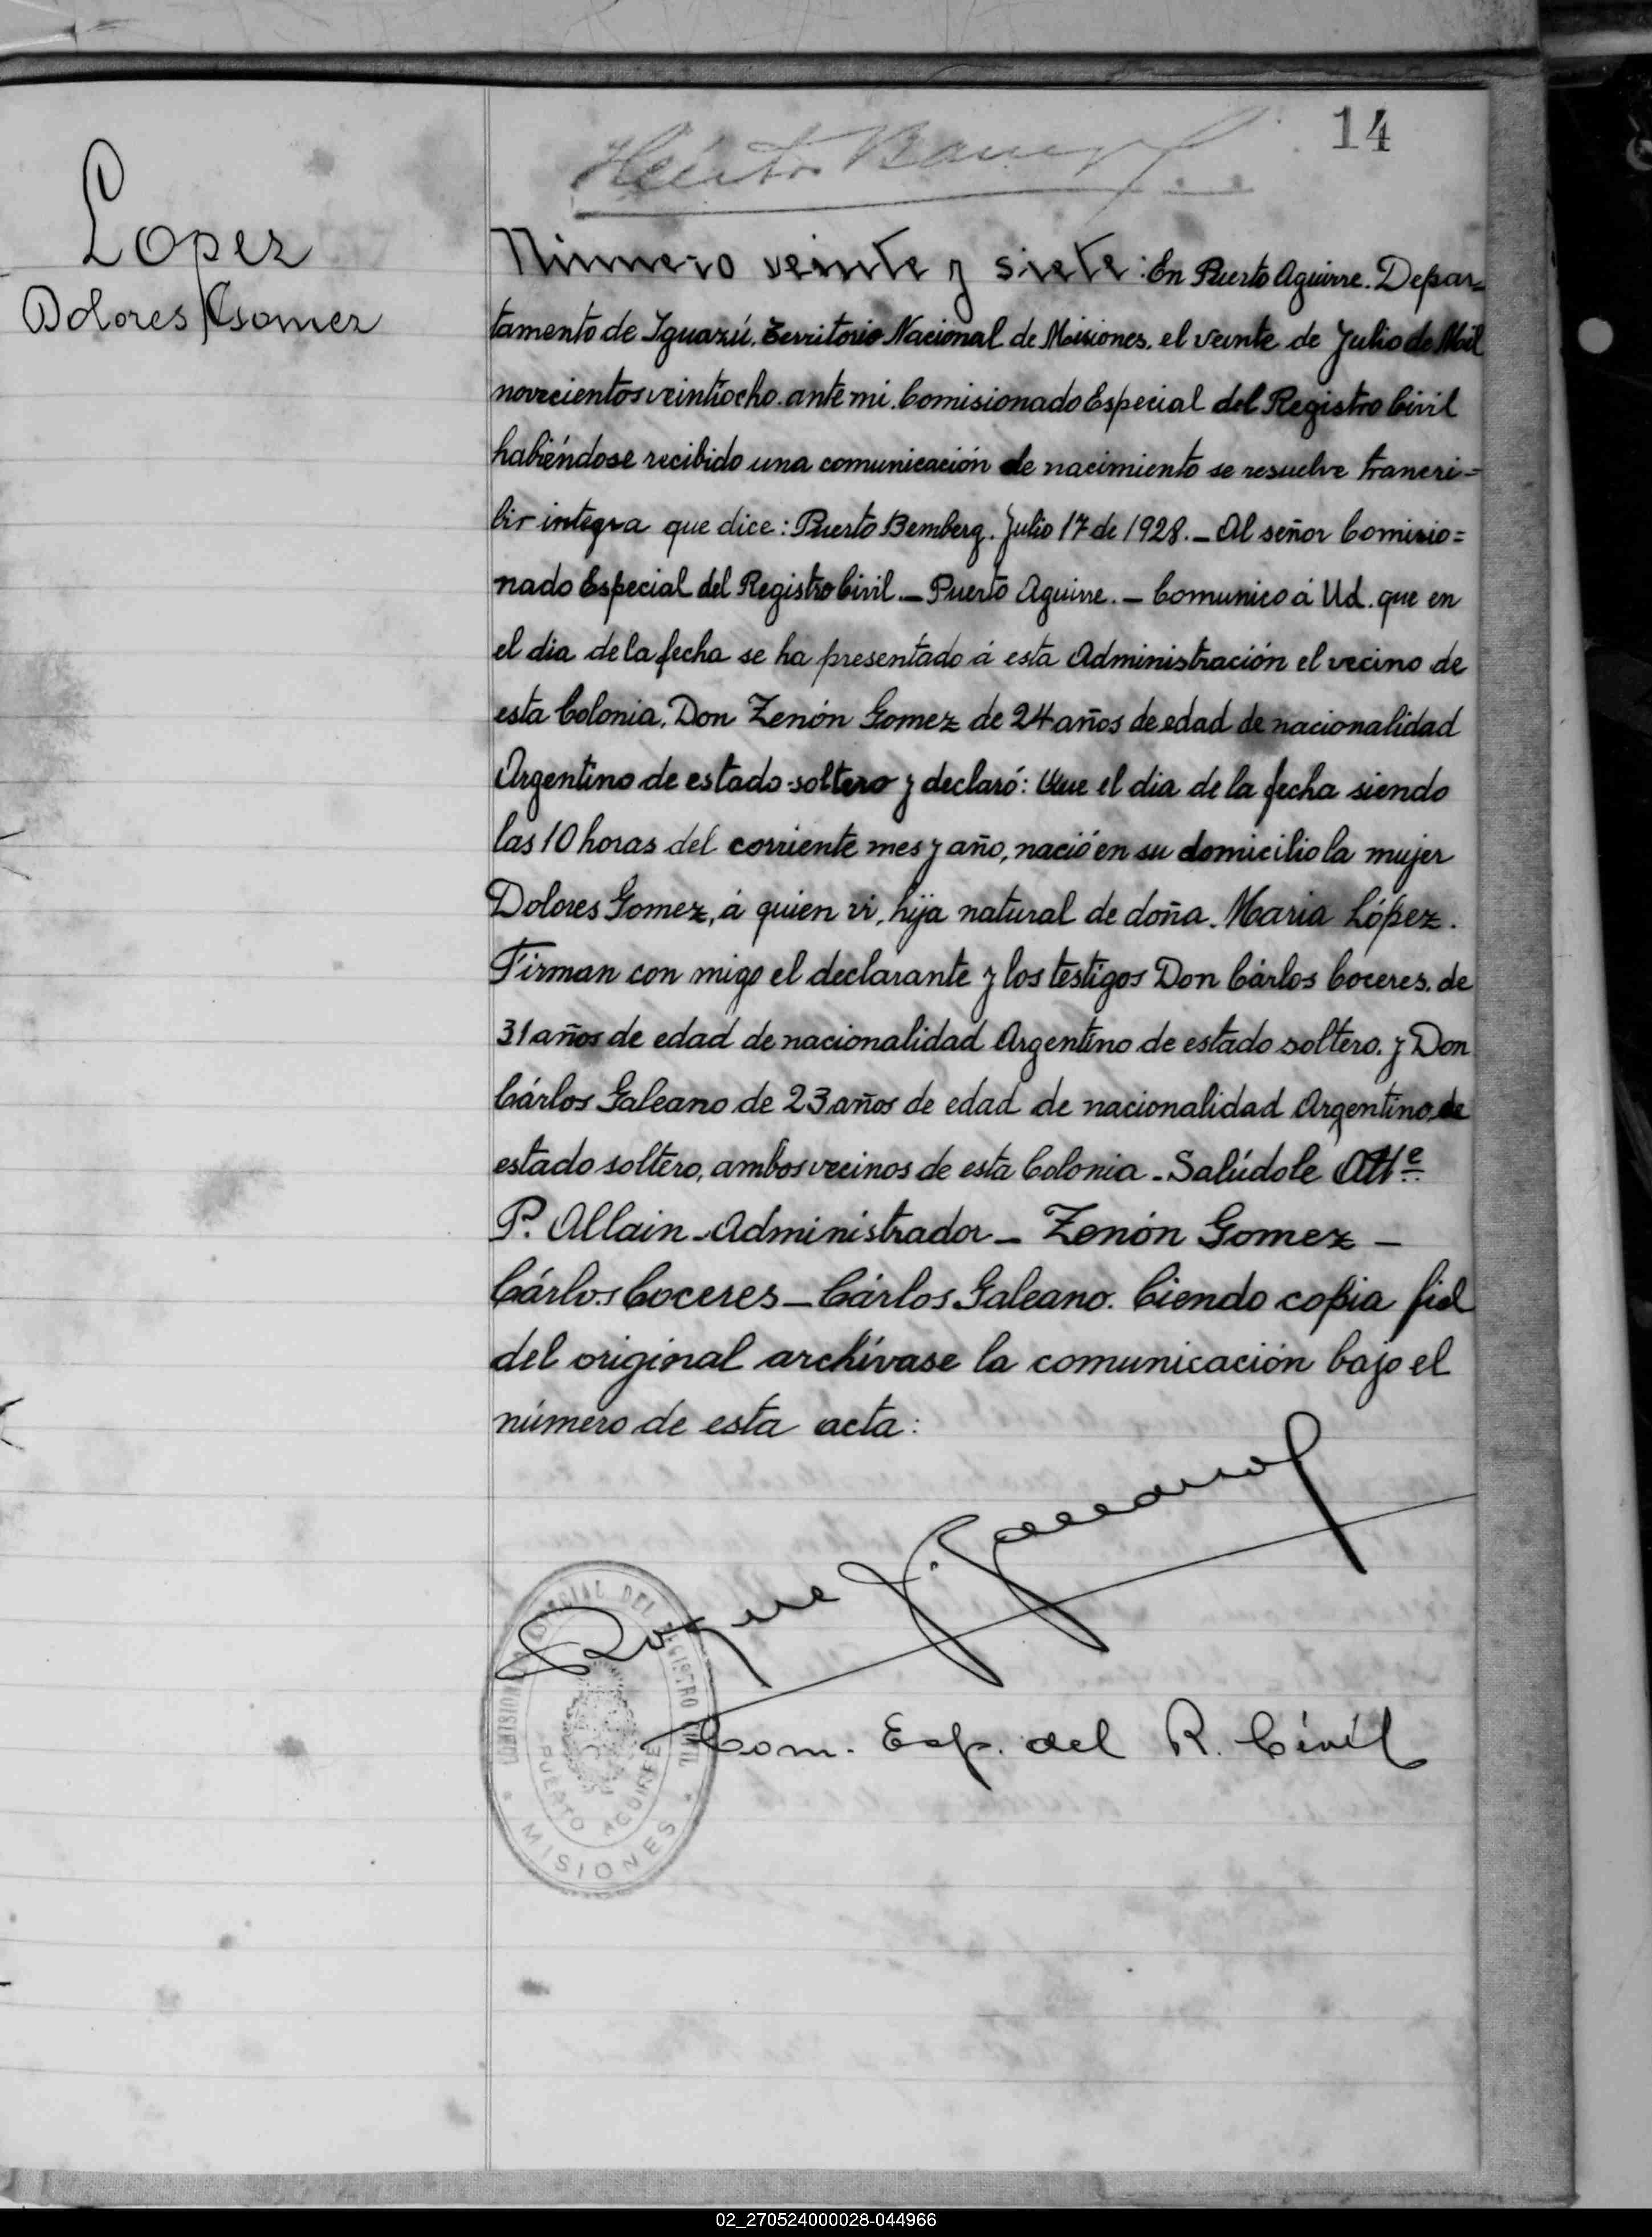 14
Lopez
Dolores Gomez
Número veinte y siete: En Puerto Aguirre. Depar=
tamento de Iguazú, Territorio Nacional de Misiones, el veinte de Julio de Mil
novecientos veintiocho. ante mi. Comisionado Especial del Registro Civil
habiéndose recibido una comunicación de nacimiento se resuelve trancri=
bir integra que dice: Puerto Bemberg. Julio 17 de 1928. _ Al señor Comisio=
nado Especial del Registro Civil. _ Puerto Aguirre. _ Comunico á Ud. que en
el dia de la fecha se ha presentado á esta Administración el vecino de
esta Colonia, Don Zenón Gomez de 24 años de edad de nacionalidad
Argentino de estado soltero y declaró: Que el dia de la fecha siendo
las 10 horas del corriente mes y año, nació en su domicilio la mujer
Dolores Gomez, á quien vi, hija natural de doña. Maria López.
Firman con migo el declarante y los testigos Don Cárlos Coceres, de
31 años de edad de nacionalidad Argentino de estado soltero. y Don
Cárlos Galeano de 23 años de edad de nacionalidad Argentino, de
estado soltero, ambos vecinos de esta Colonia _ Salúdole Atte
P. Allain _ Administrador _ Zenón Gomez _
Cárlos Coceres _ Cárlos Galeano. Ciendo copia fiel
del original archívase la comunicación bajo el
número de esta acta:
Roque J.
Com. Esp. del R. Civil
COMISIONADO ESPECIAL DEL REGISTRO CIVIL
PUERTO AGUIRRE
MISIONES
02_270524000028-044966